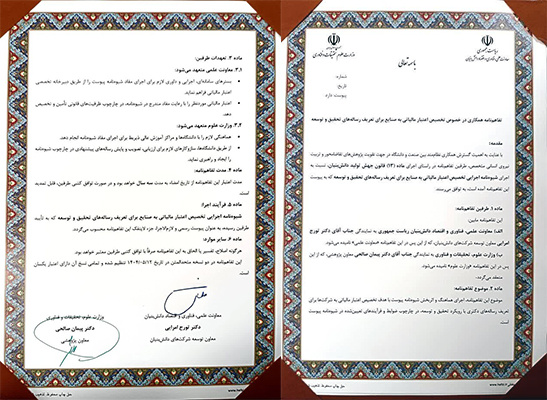 ریاست جمهوری
معاونت علمی، فناوری و اقتصاد دانش بنیان
وزارت علوم، تحقیقات و فناوری
باسمه تعالی
شماره:
تاریخ:
پیوست: دارد
تفاهم‌نامه همکاری در خصوص تخصیص اعتبار مالیاتی به صنایع برای تعریف رساله‌های تحقیق و توسعه
مقدمه:
با عنایت به اهمیت گسترش همکاری نظام‌مند بین صنعت و دانشگاه در جهت تقویت پژوهش‌های تقاضامحور و تربیت
نیروی انسانی متخصص، طرفین تفاهم‌نامه در راستای اجرای ماده (۱۳) قانون جهش تولید دانش‌بنیان، نسبت به
شیوه‌نامه اجرایی تخصیص اعتبار مالیاتی به صنایع برای تعریف رساله‌های تحقیق و توسعه که به پیوست
این تفاهم‌نامه آمده است، به توافق می‌رسند.
ماده ۱. طرفین تفاهم‌نامه:
این تفاهم‌نامه مابین:
الف) معاونت علمی، فناوری و اقتصاد دانش‌بنیان ریاست جمهوری به نمایندگی جناب آقای دکتر تورج
امرایی معاون توسعه شرکت‌های دانش‌بنیان، که از این پس در این تفاهم‌نامه «معاونت علمی» نامیده می‌شود.
ب) وزارت علوم، تحقیقات و فناوری به نمایندگی جناب آقای دکتر پیمان صالحی معاون پژوهشی، که از این
پس در این تفاهم‌نامه «وزارت علوم» نامیده می‌شود.
منعقد می‌گردد.
ماده ۲. موضوع تفاهم‌نامه:
موضوع این تفاهم‌نامه، اجرای هماهنگ و اثربخش شیوه‌نامه پیوست با هدف تخصیص اعتبار مالیاتی به شرکت‌ها برای
تعریف رساله‌های دکتری با رویکرد تحقیق و توسعه، در چارچوب ضوابط و فرآیندهای تعیین‌شده در شیوه‌نامه پیوست
است.
ماده ۳. تعهدات طرفین:
۳.۱. معاونت علمی متعهد می‌شود:
بسترهای سامانه‌ای، اجرایی و داوری لازم برای اجرای مفاد شیوه‌نامه پیوست را از طریق دبیرخانه تخصصی
اعتبار مالیاتی فراهم نماید.
اعتبار مالیاتی موردنظر را با رعایت مفاد مندرج در شیوه‌نامه، در چارچوب ظرفیت‌های قانونی تأمین و تخصیص
دهد.
۳.۲. وزارت علوم متعهد می‌شود:
هماهنگی لازم را با دانشگاه‌ها و مراکز آموزش عالی ذیربط برای اجرای مفاد شیوه‌نامه انجام دهد.
از طریق دانشگاه‌ها، سازوکارهای لازم برای ارزیابی، تصویب و پایش رساله‌های پیشنهادی در چارچوب شیوه‌نامه
را ایجاد و راهبری نماید.
ماده ۴. مدت تفاهم‌نامه:
مدت اعتبار این تفاهم‌نامه از تاریخ امضاء، به مدت سه سال خواهد بود و در صورت توافق کتبی طرفین، قابل تمدید
است.
ماده ۵. فرآیند اجرا:
شیوه‌نامه اجرایی تخصیص اعتبار مالیاتی به صنایع برای تعریف رساله‌های تحقیق و توسعه که به تأیید
طرفین رسیده، به عنوان پیوست رسمی و لازم‌الاجرا، جزء لاینفک این تفاهم‌نامه محسوب می‌گردد.
ماده ۶. سایر موارد:
هرگونه اصلاح، تفسیر یا الحاق به این تفاهم‌نامه صرفاً با توافق کتبی طرفین معتبر خواهد بود.
این تفاهم‌نامه در دو نسخه متحدالمتن در تاریخ ۱۴۰۴/۰۵/۱۲ تنظیم شده و تمامی نسخ آن دارای اعتبار یکسان
است.
معاونت علمی، فناوری و اقتصاد دانش‌بنیان
دکتر تورج امرایی
معاون توسعه شرکت‌های دانش‌بنیان
وزارت علوم، تحقیقات و فناوری
دکتر پیمان صالحی
معاون پژوهشی